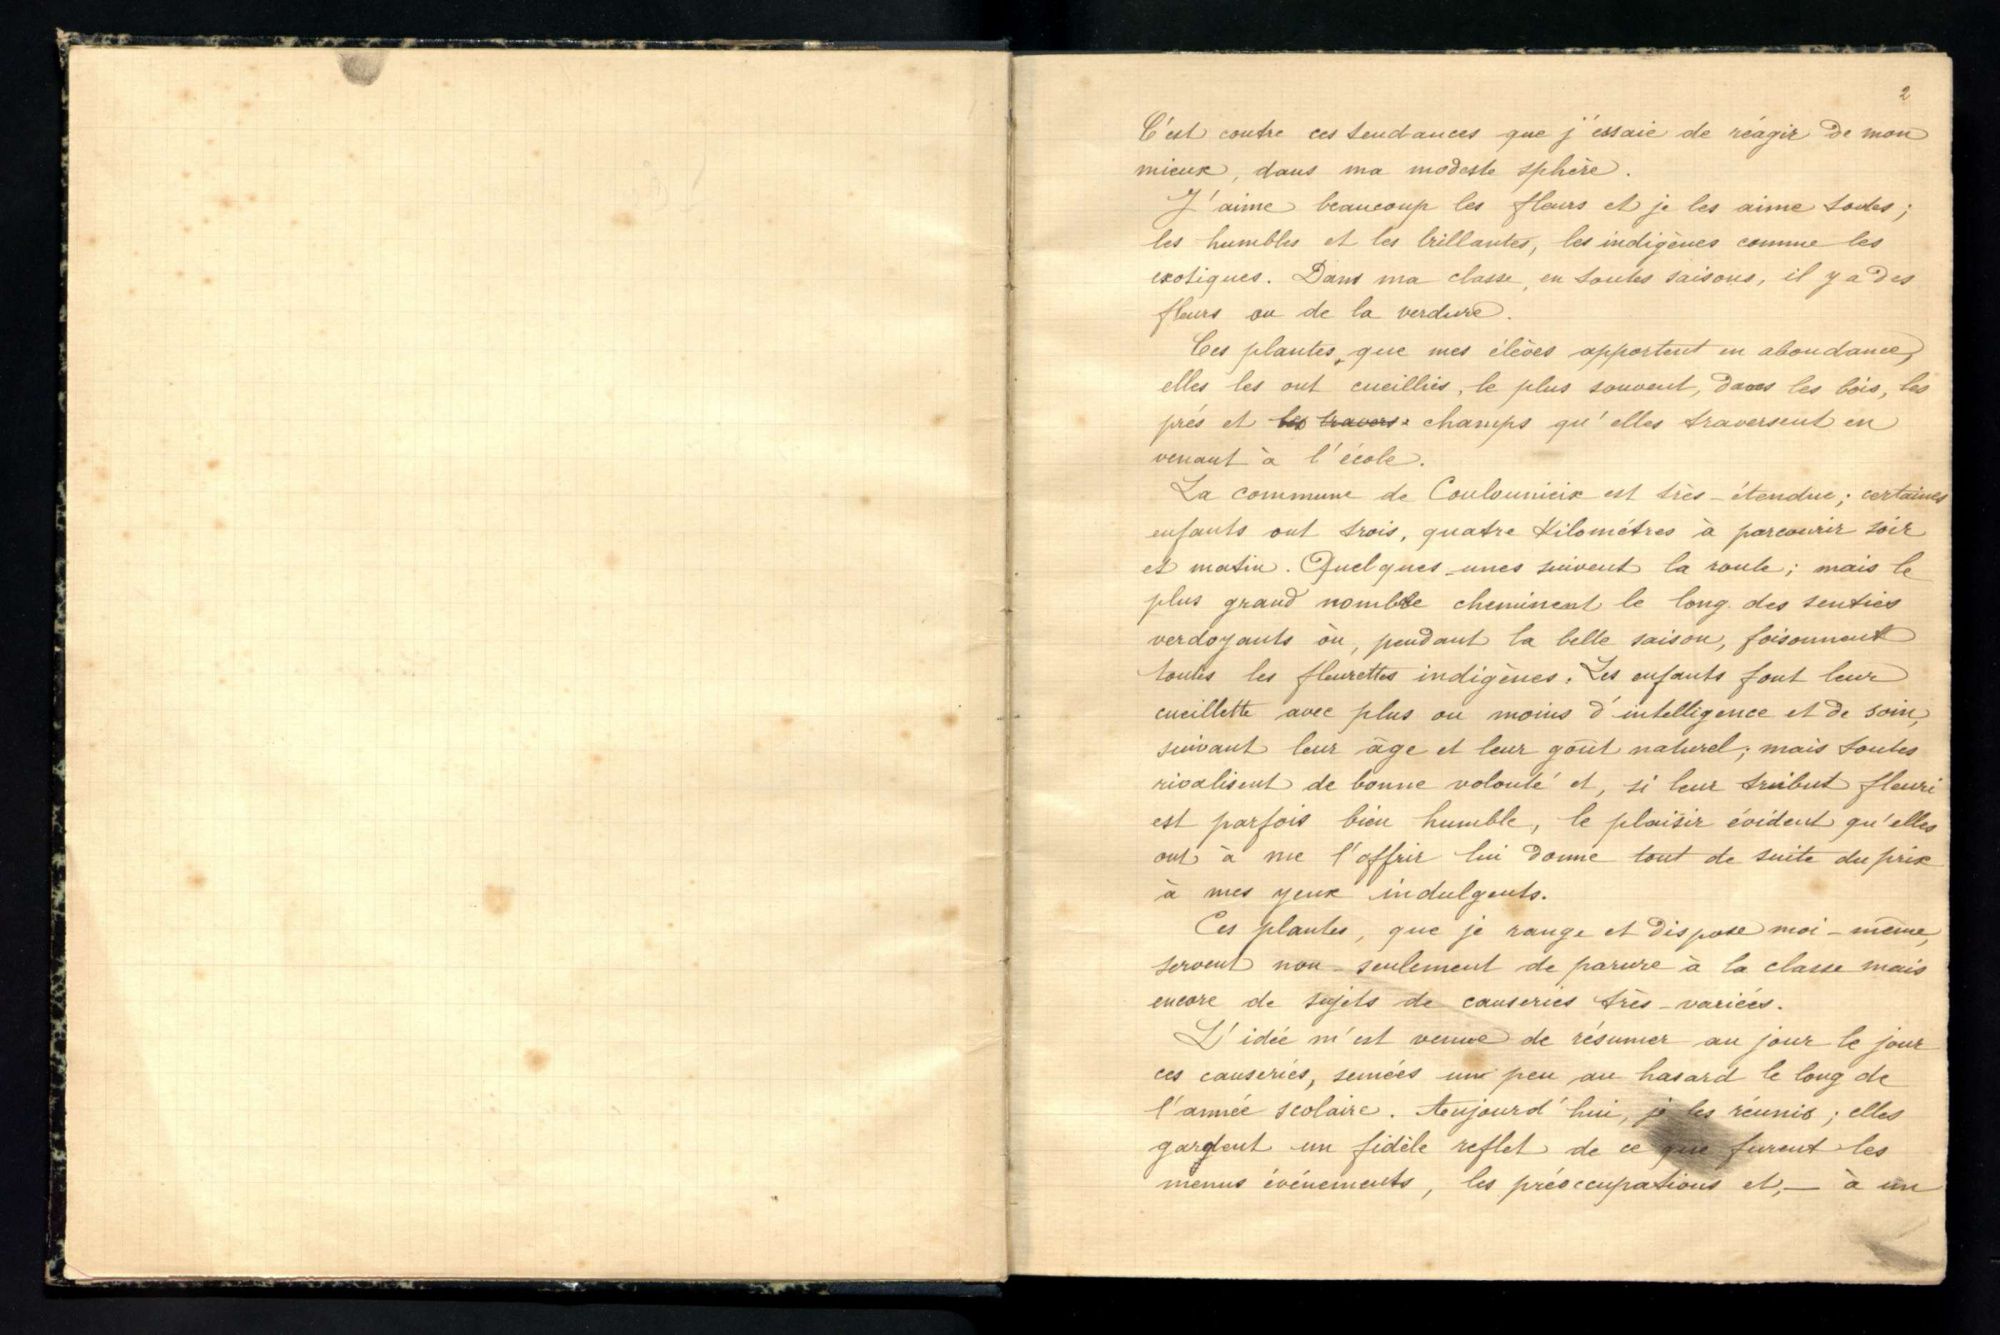 2
C'est contre ces tendances que j'essaie de réagir de mon
mieux, dans ma modeste sphère.
J'aime beaucoup les fleurs et je les aime toutes;
les humbles et les brillantes, les indigènes comme les
exotiques. Dans ma classe, en toutes saisons, il y a des
fleurs ou de la verdure.
Ces plantes, que mes élèves apportent en abondance,
elles les ont cueillies, le plus souvent, dans les bois, les
prés et les travers champs qu'elles traversent en
venant à l'école.
La commune de Coulounieix est très-étendue; certaines
enfants ont trois, quatre Kilomètres à parcourir soir
et matin. Quelques-unes suivent la route; mais le
plus grand nombre cheminent le long des sentiers
verdoyants où, pendant la belle saison, foisonnent
toutes les fleurettes indigènes. Les enfants font leur
cueillette avec plus ou moins d'intelligence et de soin,
suivant leur âge et leur goût naturel; mais toutes
rivalisent de bonne volonté et, si leur tribut fleuri
est parfois bien humble, le plaisir évident qu'elles
ont à me l'offrir lui donne tout de suite du prix
à mes yeux indulgents.
Ces plantes, que je range et dispose moi-même,
servent non-seulement de parure à la classe mais
encore de sujets de causeries très-variées.
L'idée m'est venue de résumer au jour le jour
ces causeries, semées un peu au hasard le long de
l'année scolaire. Aujourd'hui, je les réunis; elles
gardent un fidèle reflet de ce que furent les
menus événements, les préoccupations et, — à un